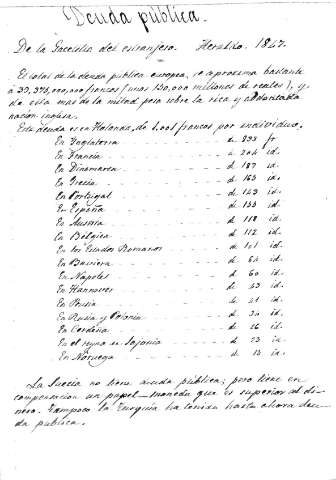 Deuda pública.
De la Gacetilla del estranjero. Heraldo. 1847.
El total de la deuda pública europea, se aproxima bastante
á 39,375,000,000 francos (unos 150,000 millones de reales), y
de esta mas de la mitad pesa sobre la rica y
nacion inglesa.
Esta deuda es en Holanda, de francos por individuo.
En Inglaterra de 233 fr.
En Francia a 204 id.
En Dinamarca de 187 id.
En Grecia de 163 id.
En Portugal de 143 id.
En España de 133 id.
En Austria de 118 id.
En Bélgica de 112 id.
En los Estados Romanos de 101 id.
En Baviera de 64 id.
En Nápoles de 60 id.
En Hannover de 43 id.
En Prusia de 41 id.
En Rusia y Polonia de 30 id.
En Cerdeña de 26 id.
En el reyno de Sajonia de 23 id.
En Noruega de 13 id.
La Suecia no tiene deuda pública; pero tiene en
compensacion un papel-moneda que es superior al di-
nero. Tampoco la Turquía ha tenido hasta ahora deu-
da publica.